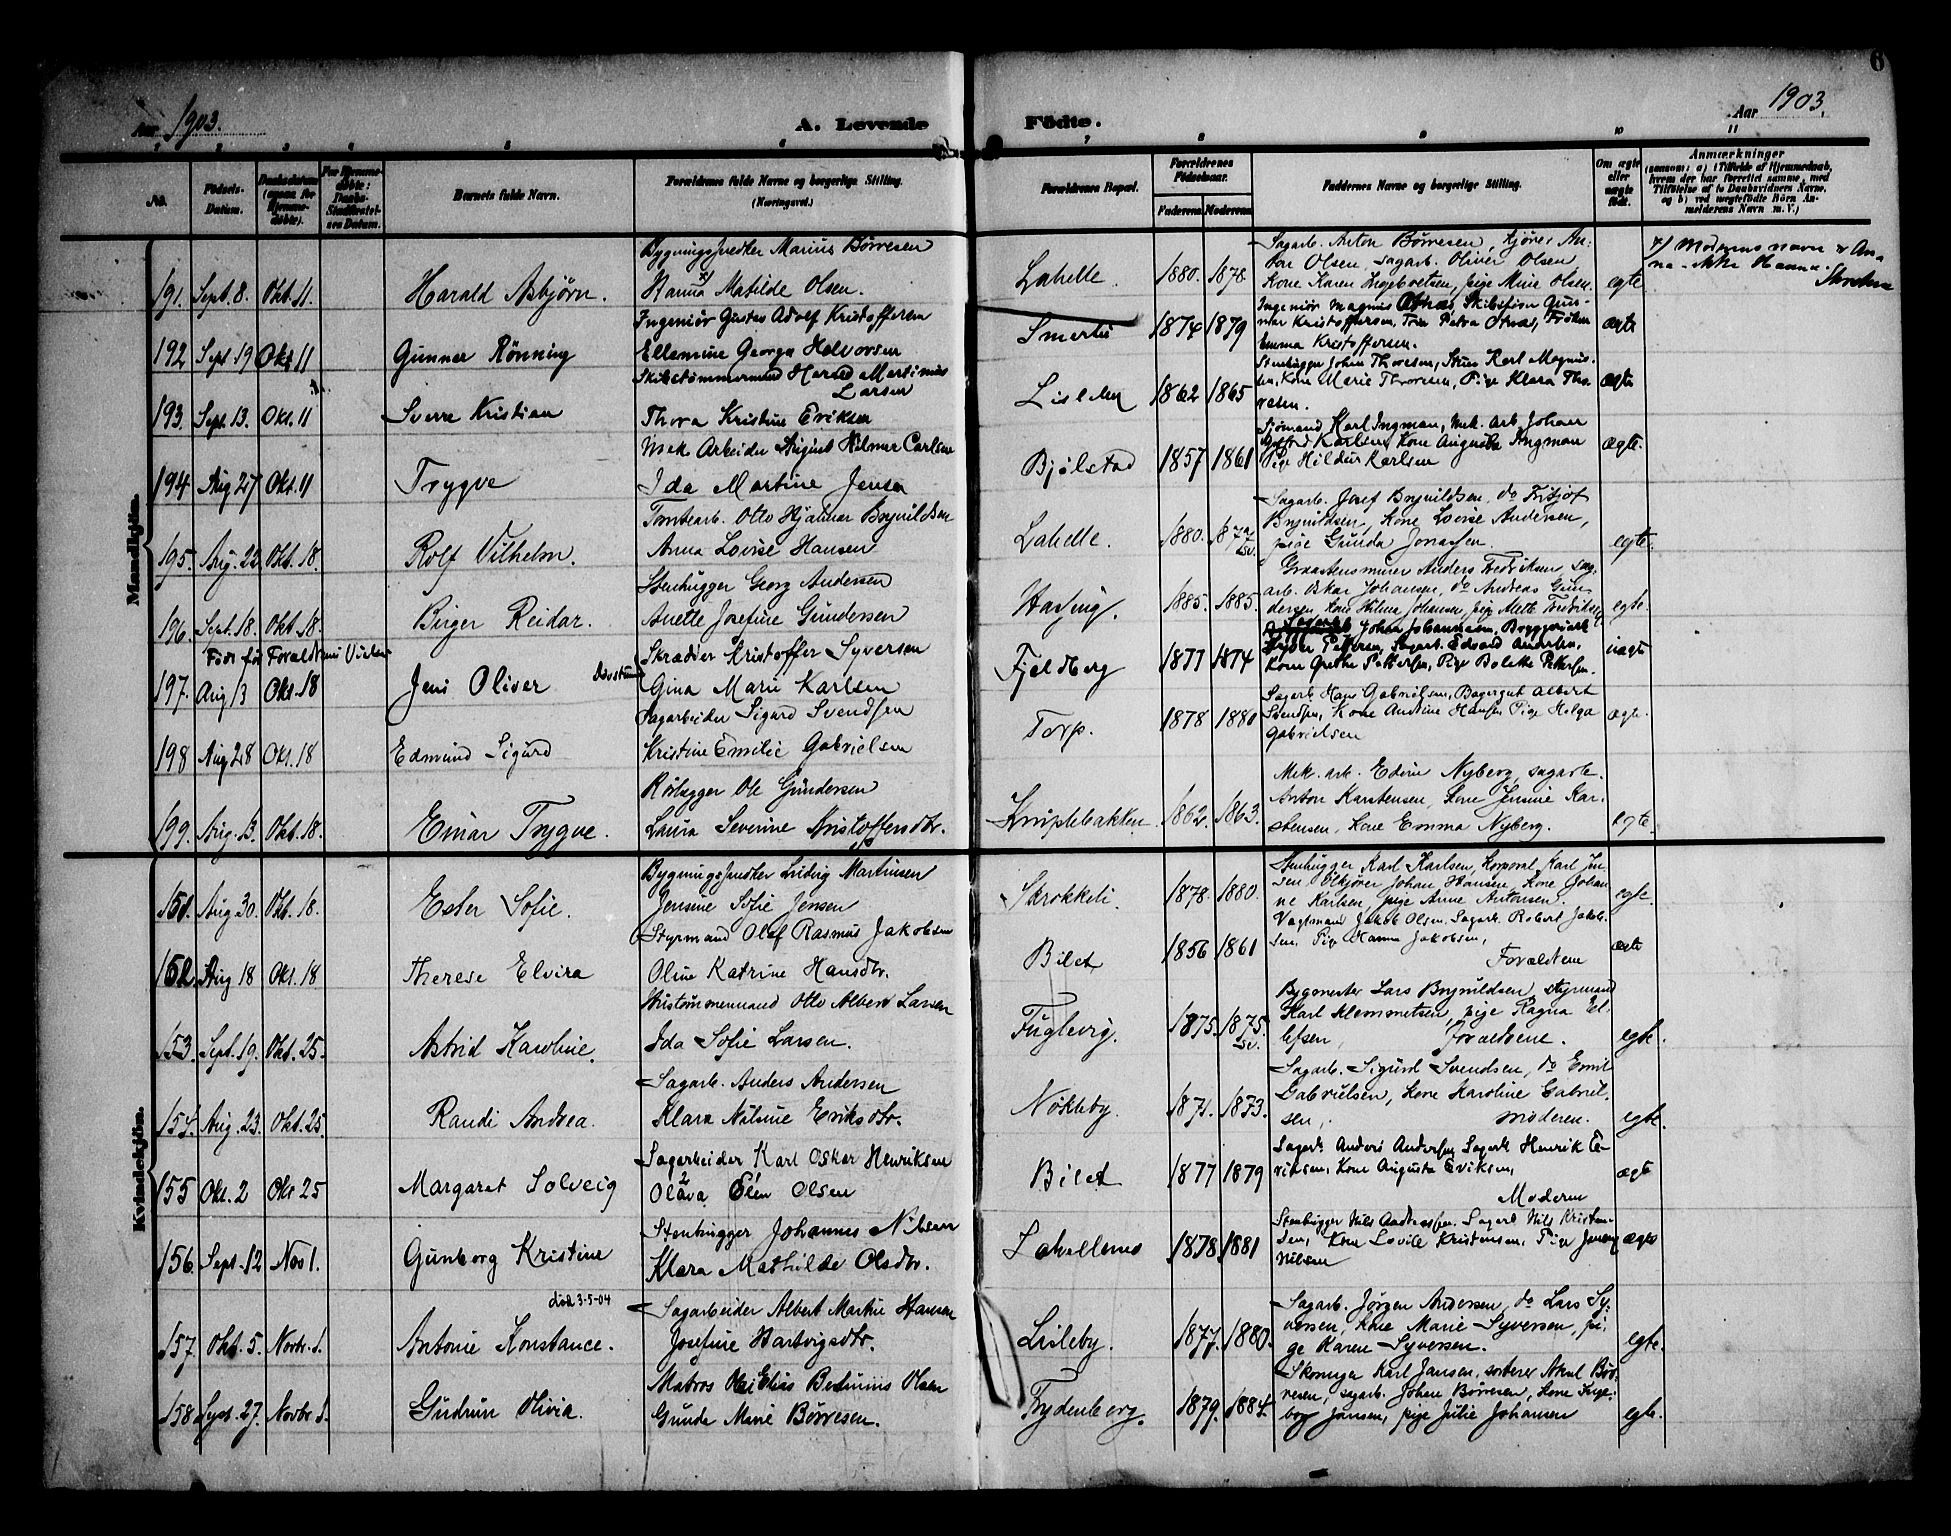 6
Aar 1903.
A. Levende
Fødte.
Aar 1903.
No.
Fødsels-Datum.
Barnets fulde Navn.
Forældrenes fulde Navne og borgerlige Stilling.
(Næringsvei.)
Forældrenes Bopæl.
Forældrenes Fødselsaar.
Faderens. Moderens.
Faddernes Navne og borgerlige Stilling.
Om ægte eller uægte født.
Anmærkninger
Mandkjön.
191. Sept. 8. Okt. 11. Harald Asbjørn.
Bygningssnedker Marius Børresen
Hanna x) Matilde Olsen.
Labelle. 1880. 1878.
Sagarb. Anton Børresen, kjører An-
ton Olsen, sagarb. Oliver Olsen
Kone Karen Ingebretsen, pige Mina Olsen.
egte
x) Moderens navn er An-
na - ikke Hanna.
192 Sept 19 Okt 11 Gunnar Rönning
Ingeniör Gustav Adolf Kristoffersen
Ellemine Georga Halvorsen
Smertu 1874 1879
Emma Kristoffersen.
ægte
193. Sept. 13. Okt. 11 Sverre Kristian
Skibstømmermand Harald Martinius
Larsen
Thora Kristine Eriksen
Lisleby 1862 1865
Stenhugger Johan Thoresen, Stuer Karl Magnus-
sen, Kone Marie Thoresen, Pige Klara Tho-
resen.
ægte
194 Aug 27 Okt. 11 Trygve
Mek Arbeider August Hilmar Carlsen
Ida Martine Jensen
Bjølstad 1857 1861
Sjømand Karl Ingman, Mek. Arb Johan
Karlsen, Kone Augusta Ingman
Pige Hildur Karlsen
ægte.
195. Aug. 22 Okt. 18. Rolf Vilhelm.
Tomtearb. Otto Hjalmar Brynildsen
Anna Lovise Hansen
Labelle. 1880. 1877
Sagarb. Josef Brynildsen, do Fritjof
Brynildsen, Kone Lovise Andersen,
pige Gunda Jonassen.
egte.
196. Sept. 18. Okt. 18. Birger Reidar.
Stenhugger Georg Andersen
Anette Josefine Gundersen
1885. 1885.
Graastensmurer Anders Fredriksen sag-
arb. Oskar Johansen, do Andreas Gun-
dersen Kone Hilma Johansen, pige Alette Fredriksen
egte.
Född før Forældrenes Vielse
197. Aug 13 Okt. 18 Jens Oliver
Skrædder Kristoffer Syversen
Gina Marie Karlsen
Fjeldberg 1877 1874
Johan Johannesen, Bryggeriarb
Pettersen, Sagarb. Edvard Andersen,
Kone Grethe Pettersen, Pige Bolette Pettersen.
uægte
198 Aug 28 Okt. 18 Edmund Sigurd
Sagarbeider Sigurd Svendsen
Kristine Emilie Gabrielsen
Torp. 1878 1880
Sagarb Hans Gabrielsen, Bagergut Albert
Svendsen, Kone Andrine Hansen Pige Helga
Gabrielsen
ægte.
199. Aug. 13. Okt. 18. Einar Trygve.
Rørlægger Ole Gundersen
Laura Severine Kristoffersdtr.
Kniplebakken. 1862. 1863.
Mek. arb. Edvin Nyberg, sagarb.
Anton Karstensen, Kone Jennie Kar-
stensen, Kone Emma Nyberg.
egte.
Kvindekjön.
151. Aug. 30. Okt. 18. Ester Sofie.
Bygningssnedker Ludvig Martinsen
Jensine Sofie Jensen
Skrokkeli. 1878. 1880.
Stenhugger Karl Karlsen, Korporal Karl Jen-
sen Johan Hansen, Kone Johan-
ne Karlsen, pige Anne Antonsen.
egte.
152 Aug 18 Okt. 18 Therese Elvira
Styrmand Olaf Rasmus Jakobsen
Oline Katrine Hansdtr.
Bilet 1856 1861
Vagtmand Jakob Olsen, Sagarb. Robert Jakob-
sen, Pige Hanna Jakobsen,
Forældrene
ægte
153. Sept. 19. Okt. 25. Astrid Karoline.
Skibstømmermand Otto Albert Larsen
Ida Sofie Larsen.
Fuglevig. 1875. 1875.
Bygmester Lars Brynildsen, styrmand
Karl Klemmetsen, pige Ragna El-
lefsen, Forældrene.
egte.
154. Aug. 23. Okt. 25. Randi Andrea.
Sagarb. Anders Andersen
Klara Nilsine Eriksdtr.
Nøkleby. 1871. 1873.
Sagarb. Sigurd Svendsen, do Emil
Gabrielsen, Kone Karoline Gabriel-
sen, moderen.
egte.
155 Okt. 2 Okt 25 Margaret Solveig
Sagarbeider Karl Oskar Henriksen
Olava Elen Olsen
Bilet 1877 1879
Sagarb. Anders Andersen Sagarb Henrik E-
riksen, Kone Augusta Eriksen,
Moderen
ægte
156. Sept. 12 Nov 1. Gunborg Kristine
Stenhugger Johannes Nilsen
Klara Mathilde Olsdtr.
1878 1881
Stenhugger Nils Andreassen, Sagarb Nils Kristen-
sen, Kone Lovise Kristensen, Pige Jenny
Nilsen
ægte
død 3-5-04
157. Okt. 5. Novbr. 1. Antonie Konstance.
Sagarbeider Albert Martin Hansen
Josefine Hartvigsdtr.
Lisleby. 1877. 1880.
Sagarb. Jørgen Andersen, do Lars Sy-
versen, Kone Marie Syversen, pi-
ge Karen Syversen.
egte.
158 Sept. 27. Novbr. 1. Gudrun Olivia.
Matros Ole Elias Bedinius Olsen
Gunda Marie Børresen.
Frydenberg. 1879. 1884.
Skomager Karl Jansen, sorterer Aksel Bør-
resen, sagarb. Johan Børresen, Kone Inge-
borg Jansen, pige Julie Johansen
egte.